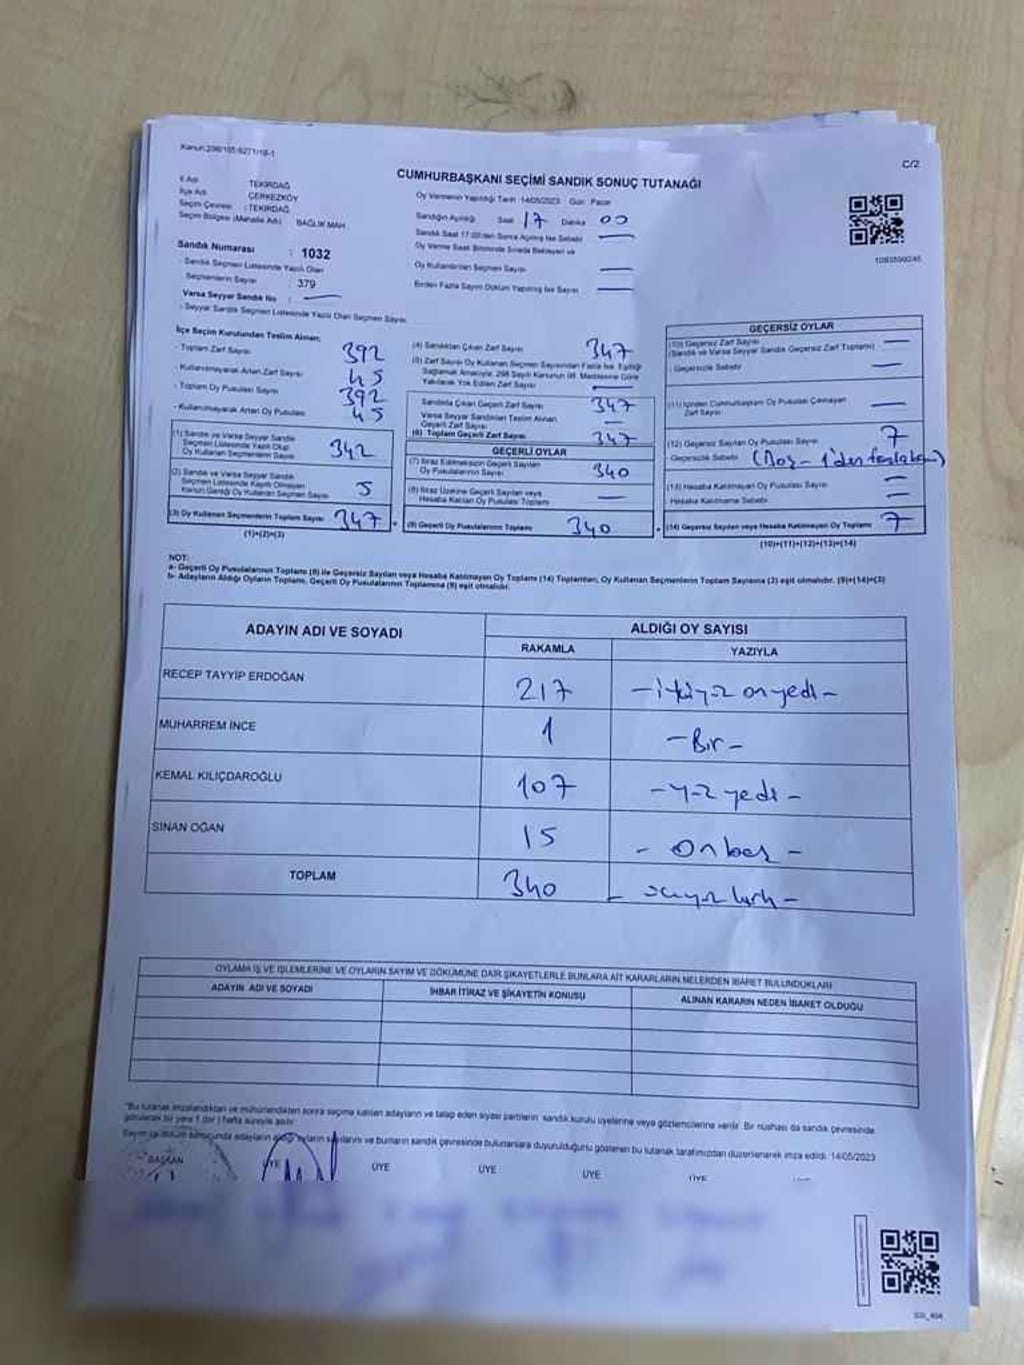 Kanun:298/105-6271/19-1
C/2
CUMHURBAŞKANI SEÇİMİ SANDIK SONUÇ TUTANAĞI
İl Adı TEKİRDAĞ
İlçe Adı ÇERKEZKÖY
Seçim Çevresi : TEKİRDAĞ
Seçim Bölgesi (Mahalle Adı) BAĞLIK MAH.
Sandık Numarası : 1032
- Sandık Seçmen Listesinde Yazılı Olan
Seçmenlerin Sayısı : 379
Varsa Seyyar Sandık No :
- Seyyar Sandık Seçmen Listesinde Yazılı Olan Seçmen Sayısı
Oy Vermenin Yapıldığı Tarih 14/05/2023 Gün Pazar
Sandığın Açılışı Saat 17 Dakika 00
Sandık Saat 17:00'den Sonra Açılmış İse Sebebi
Oy Verme Saat Bitiminde Sırada Bekleyen ve
Oy Kullandırılan Seçmen Sayısı
Birden Fazla Sayım Döküm Yapılmış İse Sayısı
İlçe Seçim Kurulundan Teslim Alınan;
- Toplam Zarf Sayısı 392
- Kullanılmayarak Artan Zarf Sayısı 45
- Toplam Oy Pusulası Sayısı 392
- Kullanılmayarak Artan Oy Pusulası 45
(1) Sandık ve Varsa Seyyar Sandık
Seçmen Listesinde Yazılı Olup
Oy Kullanan Seçmenlerin Sayısı 342
(2) Sandık ve Varsa Seyyar Sandık
Seçmen Listesinde Kayıtlı Olmayan
Kanun Gereği Oy Kullanan Seçmen Sayısı 5
(3) Oy Kullanan Seçmenlerin Toplam Sayısı 347
(1)+(2)=(3)
(4) Sandıktan Çıkan Zarf Sayısı 347
(5) Zarf Sayısı Oy Kullanan Seçmen Sayısından Fazla İse Eşitliği
Sağlamak Amacıyla, 298 Sayılı Kanunun 98. Maddesine Göre
Yakılarak Yok Edilen Zarf Sayısı
Sandıkta Çıkan Geçerli Zarf Sayısı 347
Varsa Seyyar Sandıktan Teslim Alınan
Geçerli Zarf Sayısı
(6) Toplam Geçerli Zarf Sayısı 347
GEÇERLİ OYLAR
(7) İtiraz Edilmeksizin Geçerli Sayılan
Oy Pusulalarının Sayısı 340
(8) İtiraz Üzerine Geçerli Sayılan veya
Hesaba Katılan Oy Pusulası Toplamı
(9) Geçerli Oy Pusulalarının Toplamı 340
GEÇERSİZ OYLAR
(10) Geçersiz Zarf Sayısı
(Sandık ve Varsa Seyyar Sandık Geçersiz Zarf Toplamı)
- Geçersizlik Sebebi
(11) İçinden Cumhurbaşkanı Oy Pusulası Çıkmayan
Zarf Sayısı
(12) Geçersiz Sayılan Oy Pusulası Sayısı 7
- Geçersizlik Sebebi (Boş - 1'den fazla
(13) Hesaba Katılmayan Oy Pusulası Sayısı
- Hesaba Katılmama Sebebi
(14) Geçersiz Sayılan veya Hesaba Katılmayan Oy Toplamı 7
(10)+(11)+(12)+(13)=(14)
NOT:
a- Geçerli Oy Pusulalarının Toplamı (9) ile Geçersiz Sayılan veya Hesaba Katılmayan Oy Toplamı (14) Toplamları, Oy Kullanan Seçmenlerin Toplam Sayısına (3) eşit olmalıdır. (9)+(14)=(3)
b- Adayların Aldığı Oyların Toplamı, Geçerli Oy Pusulalarının Toplamına (9) eşit olmalıdır.
ADAYIN ADI VE SOYADI
ALDIĞI OY SAYISI
RAKAMLA YAZIYLA
RECEP TAYYİP ERDOĞAN 217 - ikiyüz onyedi -
MUHARREM İNCE 1 - Bir -
KEMAL KILIÇDAROĞLU 107 - yüz yedi -
SİNAN OĞAN 15 - Onbeş -
TOPLAM 340 - üçyüz kırk -
OYLAMA İŞ VE İŞLEMLERİNE VE OYLARIN SAYIM VE DÖKÜMÜNE DAİR ŞİKAYETLERLE BUNLARA AİT KARARLARIN NELERDEN İBARET BULUNDUKLARI
ADAYIN ADI VE SOYADI İHBAR İTİRAZ VE ŞİKAYETİN KONUSU ALINAN KARARIN NEDEN İBARET OLDUĞU
"Bu tutanak imzalandıktan ve mühürlendikten sonra seçime katılan adayların ve talep eden siyasi partilerin sandık kurulu üyelerine veya gözlemcilerine verilir. Bir nüshası da sandık çevresinde
görülecek bir yere 1 (bir) hafta süreyle asılır."
Sayım ve döküm sonucunda adayların aldığı oyların sayılarını ve bunların sandık çevresinde bulunanlara duyurulduğunu gösteren bu tutanak tarafımızdan düzenlenerek imza edildi. 14/05/2023
BAŞKAN ÜYE ÜYE ÜYE ÜYE ÜYE